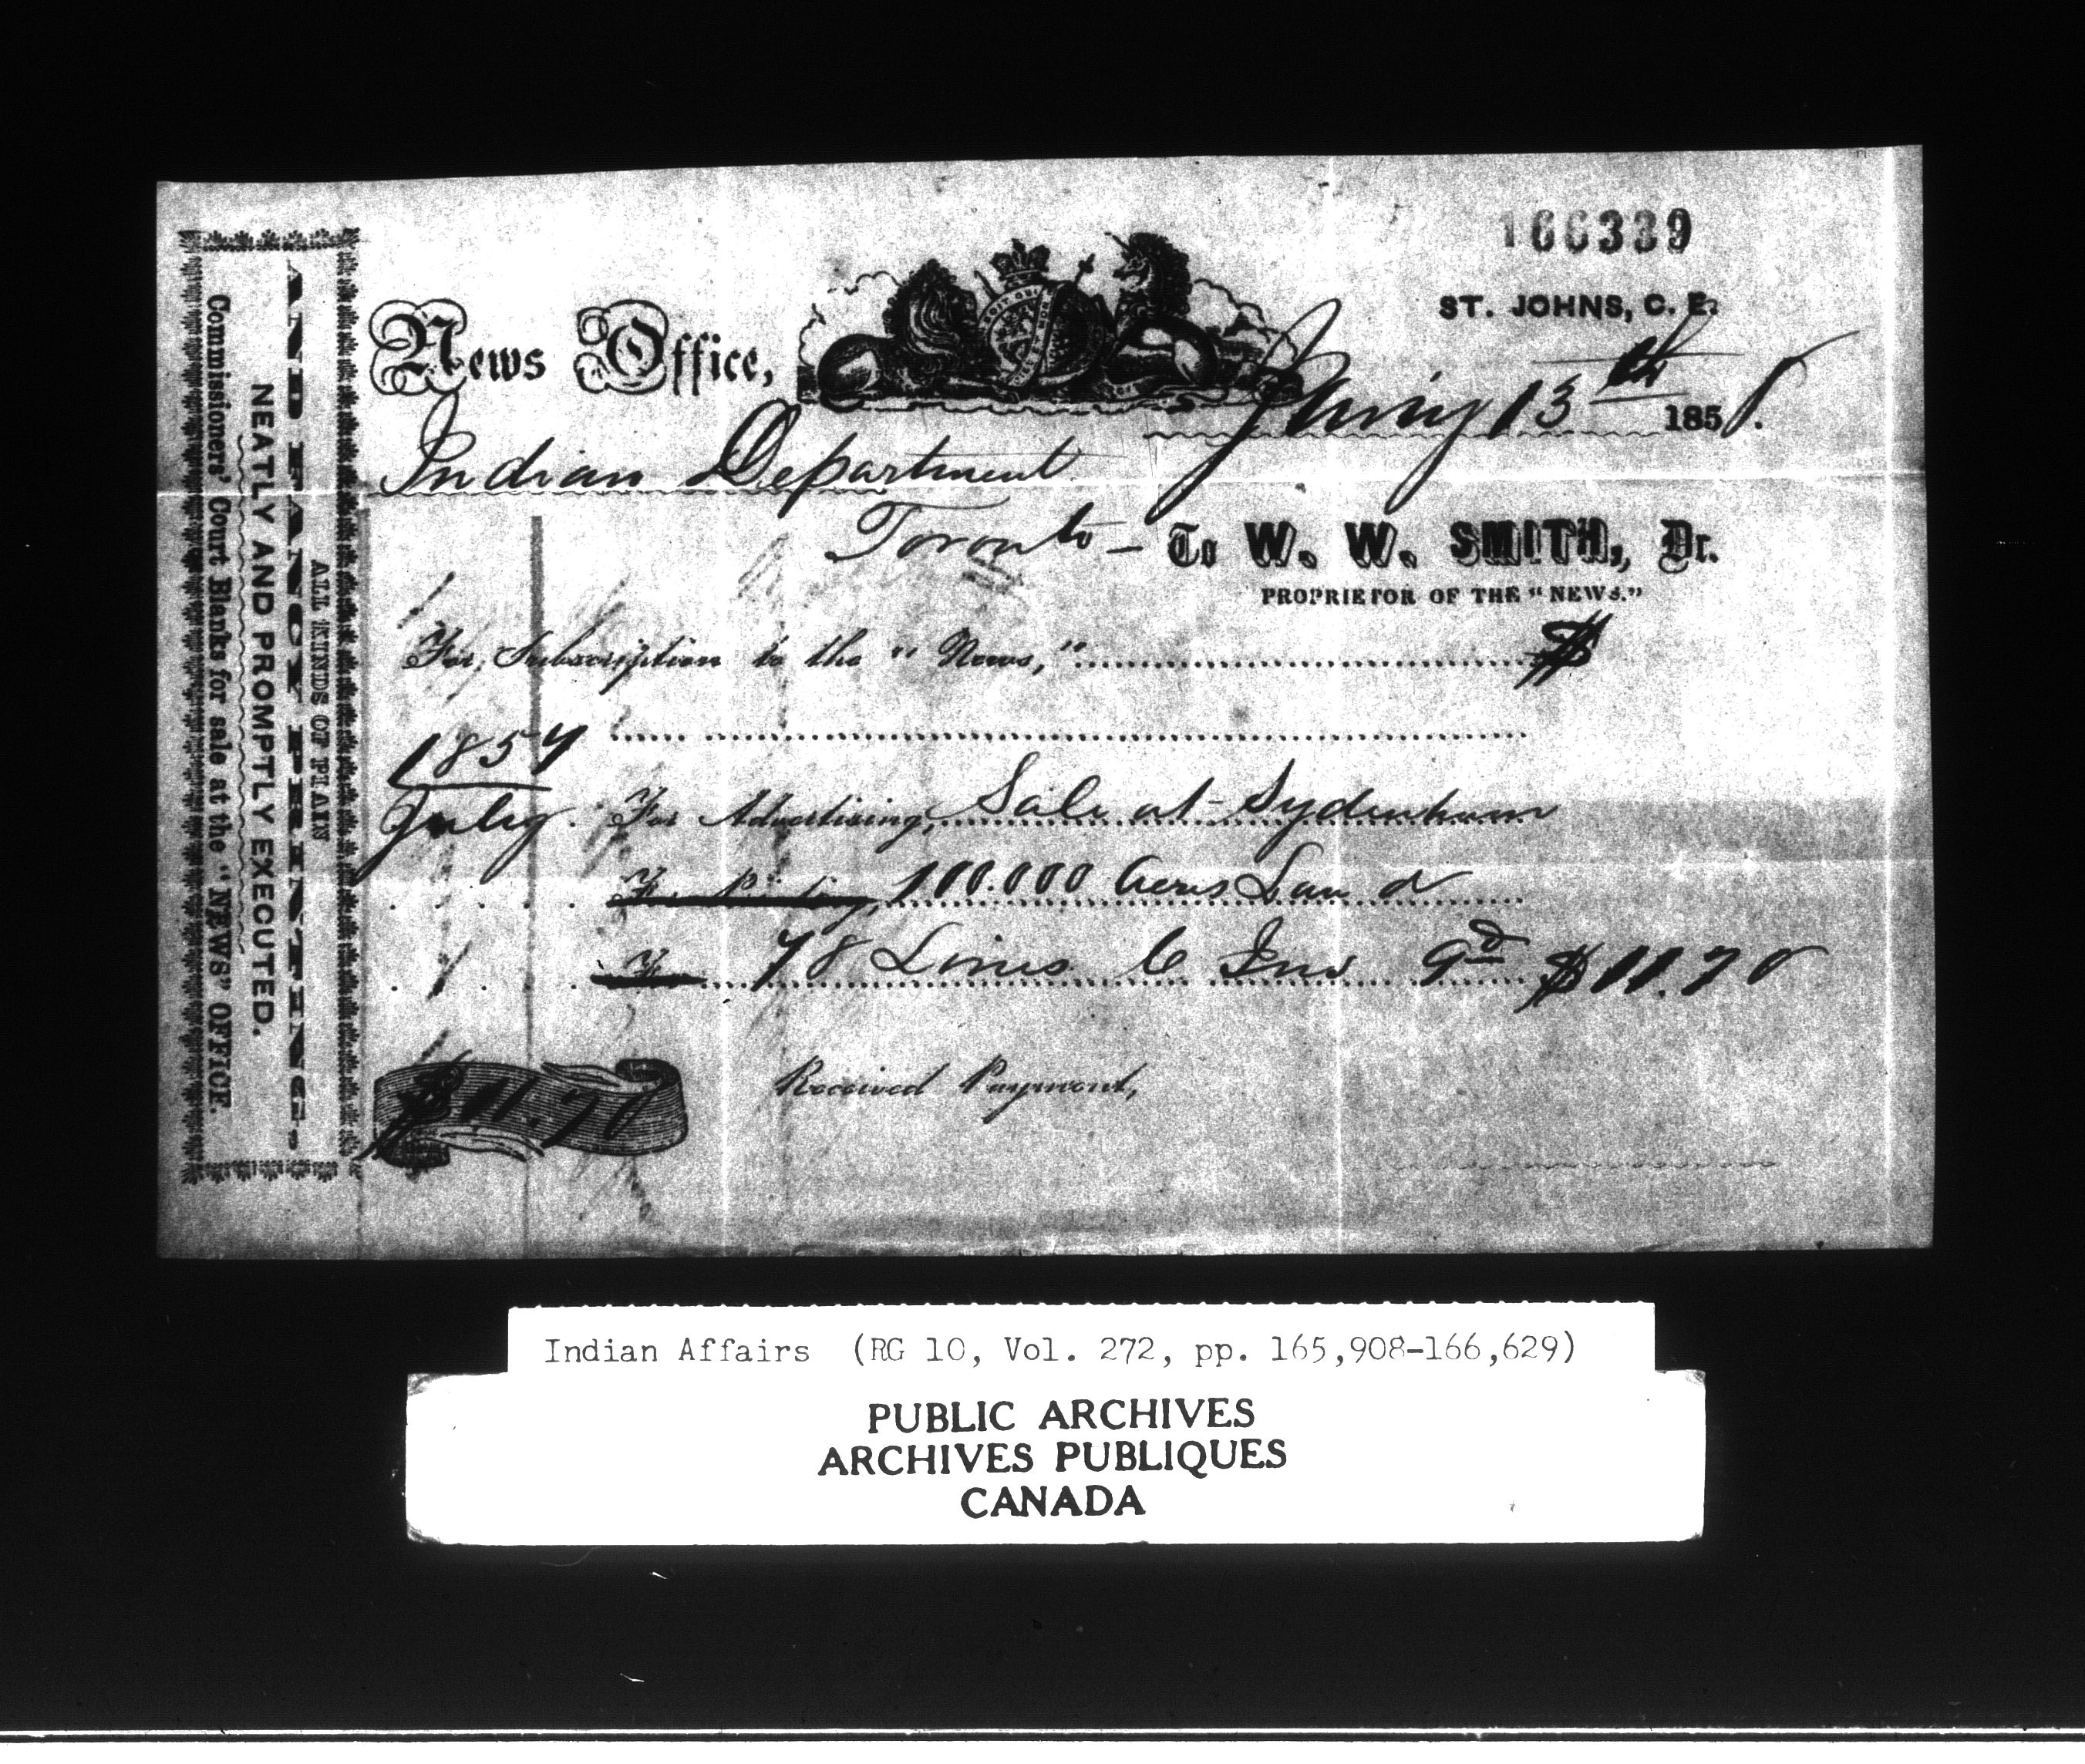 166339
ST. JOHNS, C. E.
News Office,
Jany 13th 1858.
Indian Department
Toronto — To W. W. SMITH, Dr.
PROPRIETOR OF THE "NEWS."
For Subscription to the "News," $
1857
July. For Advertising, Sale at Sydenham
For Printing, 100.000 Acres Land
For 78 Lines 6 Ins 9d $11.70
$11.70
Received Payment,
ALL KINDS OF PLAIN
AND FANCY PRINTING,
NEATLY AND PROMPTLY EXECUTED.
Commissioners' Court Blanks for sale at the "NEWS" OFFICE.
Indian Affairs (RG 10, Vol. 272, pp. 165,908-166,629)
PUBLIC ARCHIVES
ARCHIVES PUBLIQUES
CANADA